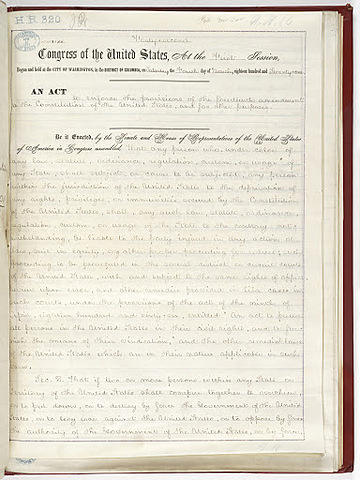 H.R. 320
Forty-second
Congress of the United States, At the First Session,
Begun and held at the CITY OF WASHINGTON, in the DISTRICT OF COLUMBIA, on Saturday the Fourth day of March, eighteen hundred and Seventy-one.
AN ACT
to enforce the provisions of the fourteenth amendment
to the Constitution of the United States, and for other purposes.
Be it Enacted, by the Senate and House of Representatives of the United States
of America in Congress assembled, That any person who, under color of
any law, statute, ordinance, regulation, custom, or usage of
any State, shall subject, or cause to be subjected, any person
within the jurisdiction of the United States to the deprivation of
any rights, privileges, or immunities secured by the Constitution
of the United States, shall, any such law, statute, ordinance,
regulation, custom, or usage of the State to the contrary not-
withstanding, be liable to the party injured in any action at
law, suit in equity, or other proper proceeding for redress; such
proceeding to be prosecuted in the several district or circuit courts
of the United States, with and subject to the same rights of appeal,
review upon error, and other remedies provided in like cases in
such courts, under the provisions of the act of the ninth of
April, eighteen hundred and sixty-six, entitled "An act to protect
all persons in the United States in their civil rights, and to furnish
the means of their vindication," and the other remedial laws
of the United States which are in their nature applicable in such
cases.
Sec. 2. That if two or more persons within any State or
Territory of the United States shall conspire together to overthrow,
or to put down, or to destroy by force the Government of the United
States, or to levy war against the United States, or to oppose by force
the authority of the Government of the United States, or by force,